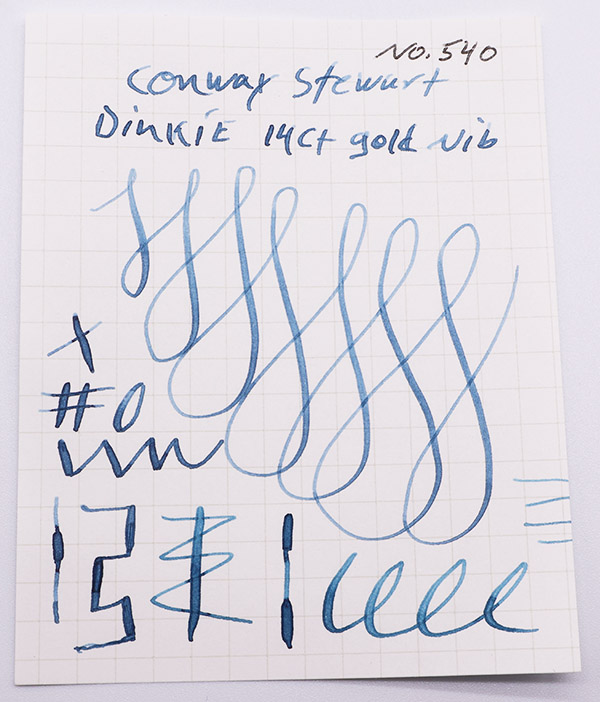 No. 540
Conway Stewart
DinkiE 14Ct gold Nib